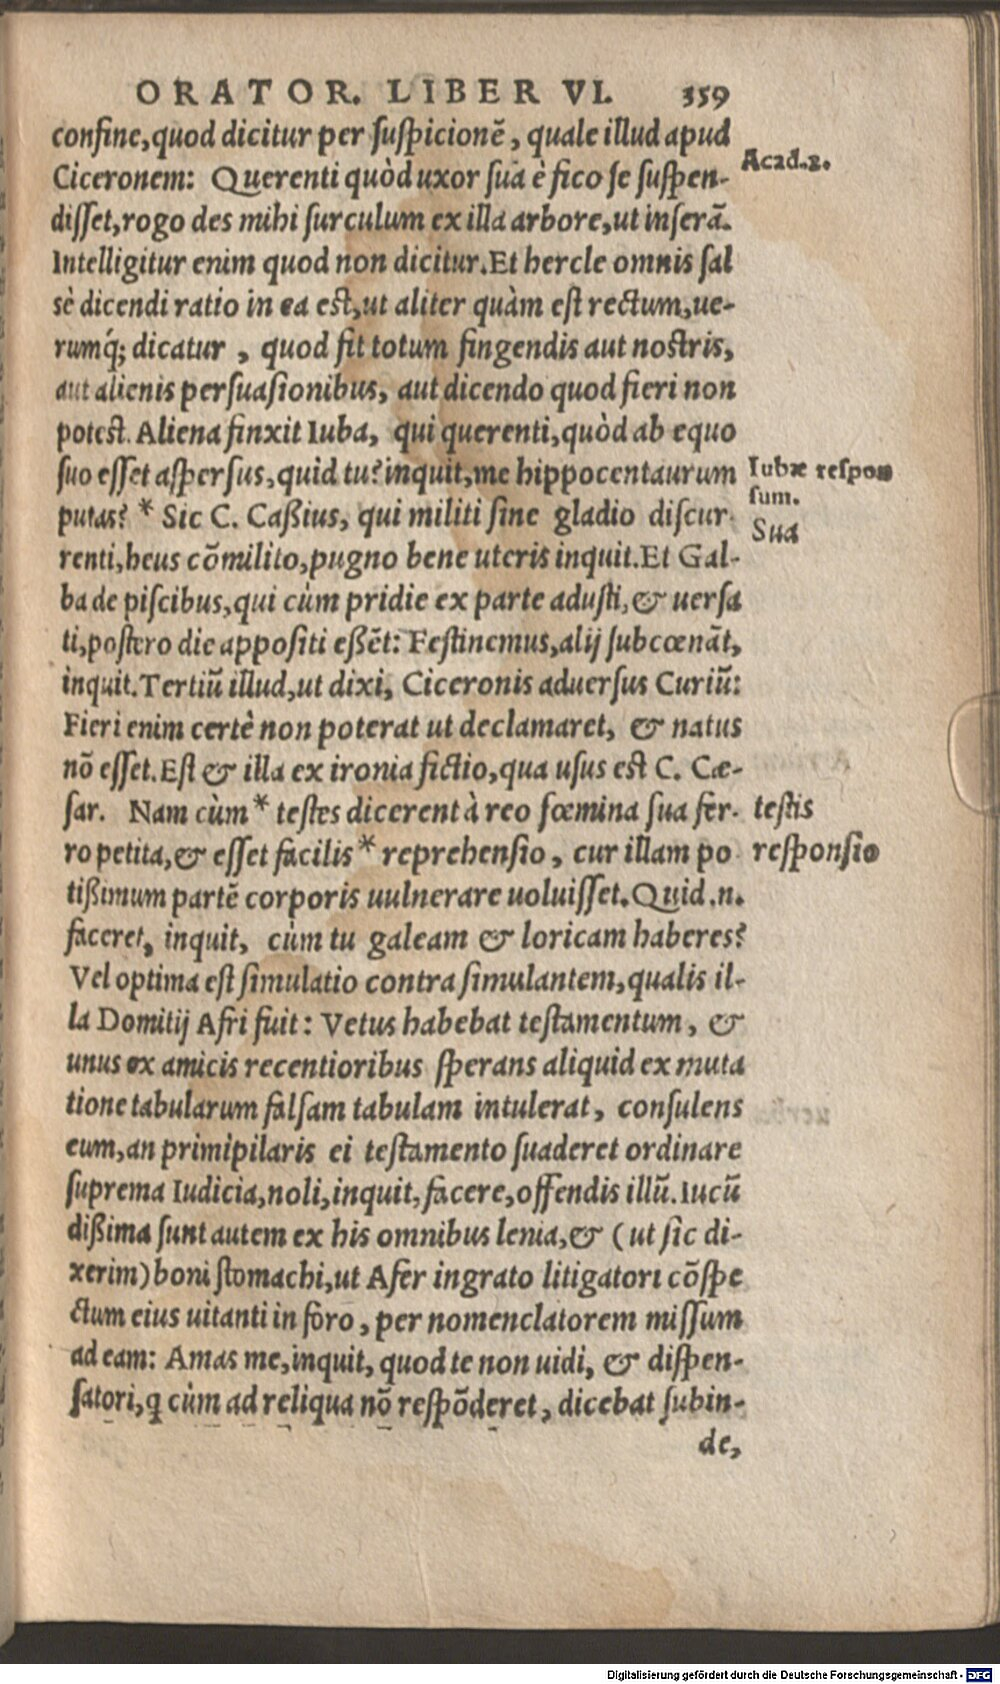 ORATOR. LIBER VI. 359
confine, quod dicitur per suspicionẽ, quale illud apud
Acad.2.
Ciceronem: Querenti quòd uxor sua è fico se suspen-
disset, rogo des mihi surculum ex illa arbore, ut inserã.
Intelligitur enim quod non dicitur. Et hercle omnis sal
sè dicendi ratio in ea est, ut aliter quàm est rectum, ue-
rumq́; dicatur, quod fit totum fingendis aut nostris,
aut alienis persuasionibus, aut dicendo quod fieri non
potest. Aliena finxit Iuba, qui querenti, quòd ab equo
suo esset aspersus, quid tu? inquit, me hippocentaurum
Iubæ respon
sum.
putas? * Sic C. Caßius, qui militi sine gladio discur-
Sua
renti, heus cõmilito, pugno bene uteris inquit. Et Gal-
ba de piscibus, qui cùm pridie ex parte adusti, & uersa
ti, postero die appositi eßẽt: Festinemus, alij subcœnãt,
inquit. Tertiũ illud, ut dixi, Ciceronis aduersus Curiũ:
Fieri enim certè non poterat ut declamaret, & natus
nõ esset. Est & illa ex ironia fictio, qua usus est C. Cæ-
sar. Nam cùm * testes dicerent à reo fœmina sua fer-
testis
ro petita, & esset facilis * reprehensio, cur illam po
responsio
tißimum partẽ corporis uulnerare uoluisset. Quid .n.
faceret, inquit, cùm tu galeam & loricam haberes?
Vel optima est simulatio contra simulantem, qualis il-
la Domitij Afri fuit: Vetus habebat testamentum, &
unus ex amicis recentioribus sperans aliquid ex muta
tione tabularum falsam tabulam intulerat, consulens
eum, an primipilaris ei testamento suaderet ordinare
suprema Iudicia, noli, inquit, facere, offendis illũ. Iucũ
dißima sunt autem ex his omnibus lenia, & (ut sic di-
xerim) boni stomachi, ut Afer ingrato litigatori cõspe
ctum eius uitanti in foro, per nomenclatorem missum
ad eam: Amas me, inquit, quod te non uidi, & dispen-
satori, q cùm ad reliqua nõ respõderet, dicebat subin-
de,
Digitalisierung gefördert durch die Deutsche Forschungsgemeinschaft - DFG